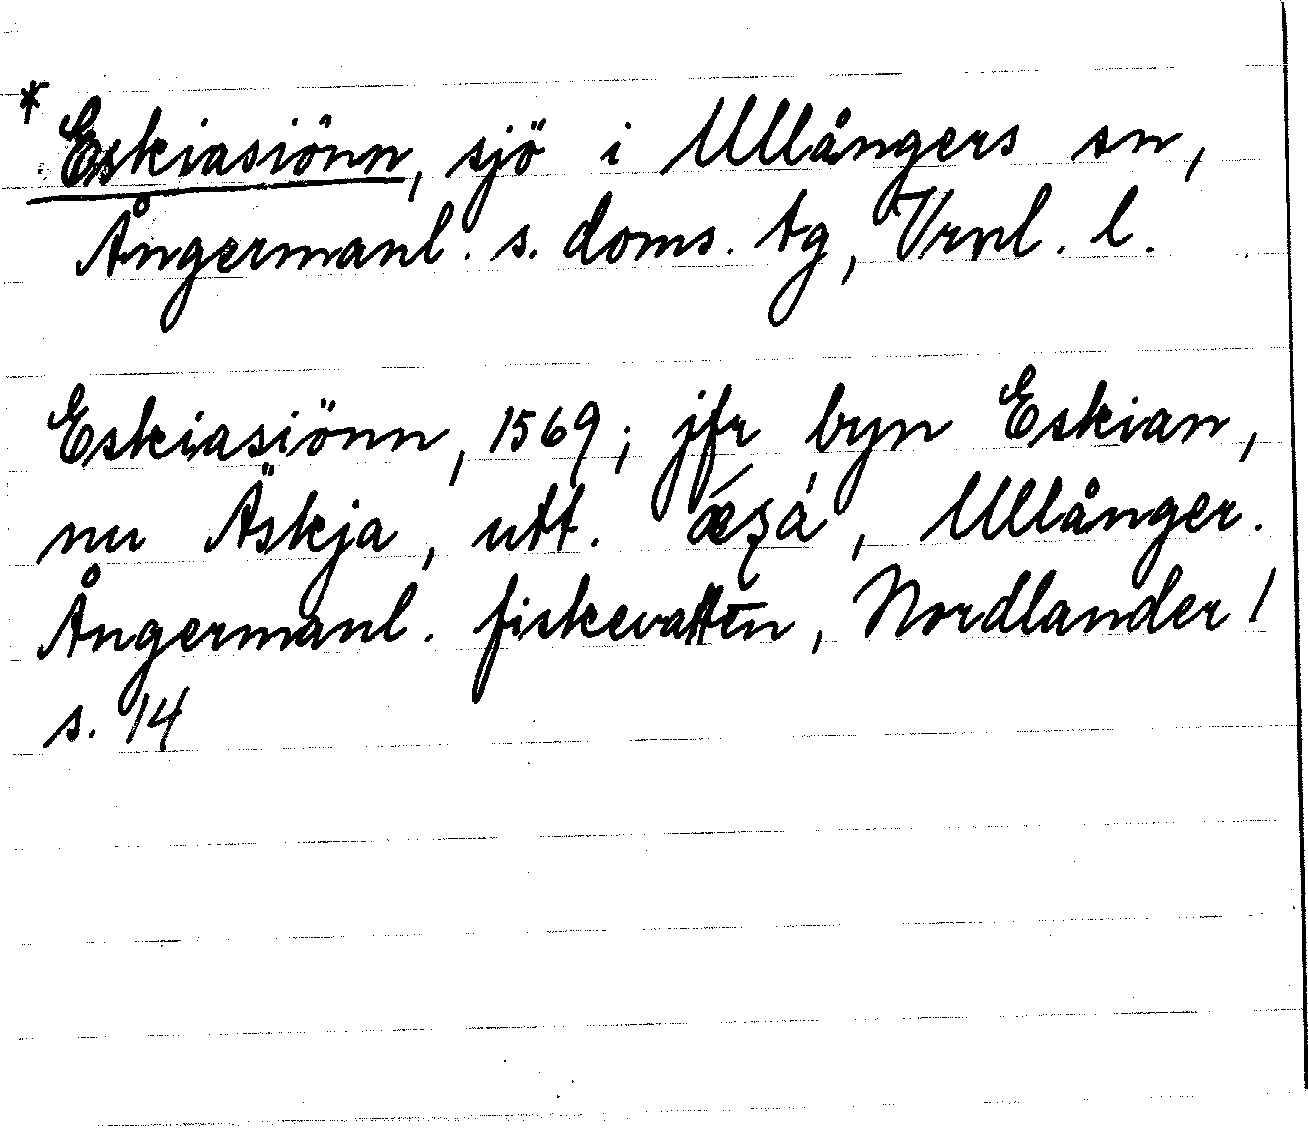 * Eskiasiönn, sjö i Ullångers sn,
Ångermanl. s. doms. tg, Vrnl. l.
Eskiasiönn, 1569; jfr byn Eskian,
nu Äskja, utt. , Ullånger.
Ångermanl. fiskevatten, Nordlander
s. 14